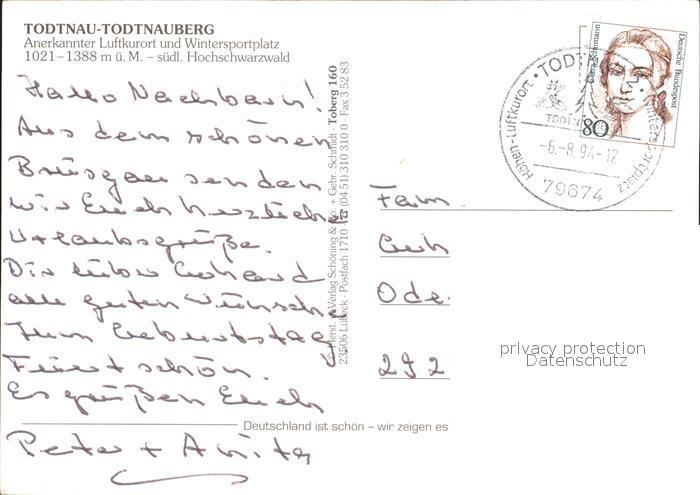 TODTNAU-TODTNAUBERG
Anerkannter Luftkurort und Wintersportplatz
1021–1388 m ü. M. – südl. Hochschwarzwald
Hallo Nachbarn!
Aus dem schönen
Breisgau senden
wir Euch herzliche
Urlaubsgrüße.
Dir lieber Gerhard
alle guten Wünsche
zum Geburtstag
Feiert schön.
Es grüßen Euch
Peter + Anita
Deutschland ist schön – wir zeigen es
Verlag Schöning & Co. + Gebr. Schmidt · Toberg 160
23506 Lübeck · Postfach 1710 · ☎ (04 51) 310 310 0 · Fax 3 52 83
Fam
Ode
292
Höhen-Luftkurort · TODTN
Wintersportplatz
TODTN
-6.-8.94-12
79674
Deutsche Bundespost
80
privacy protection
Datenschutz